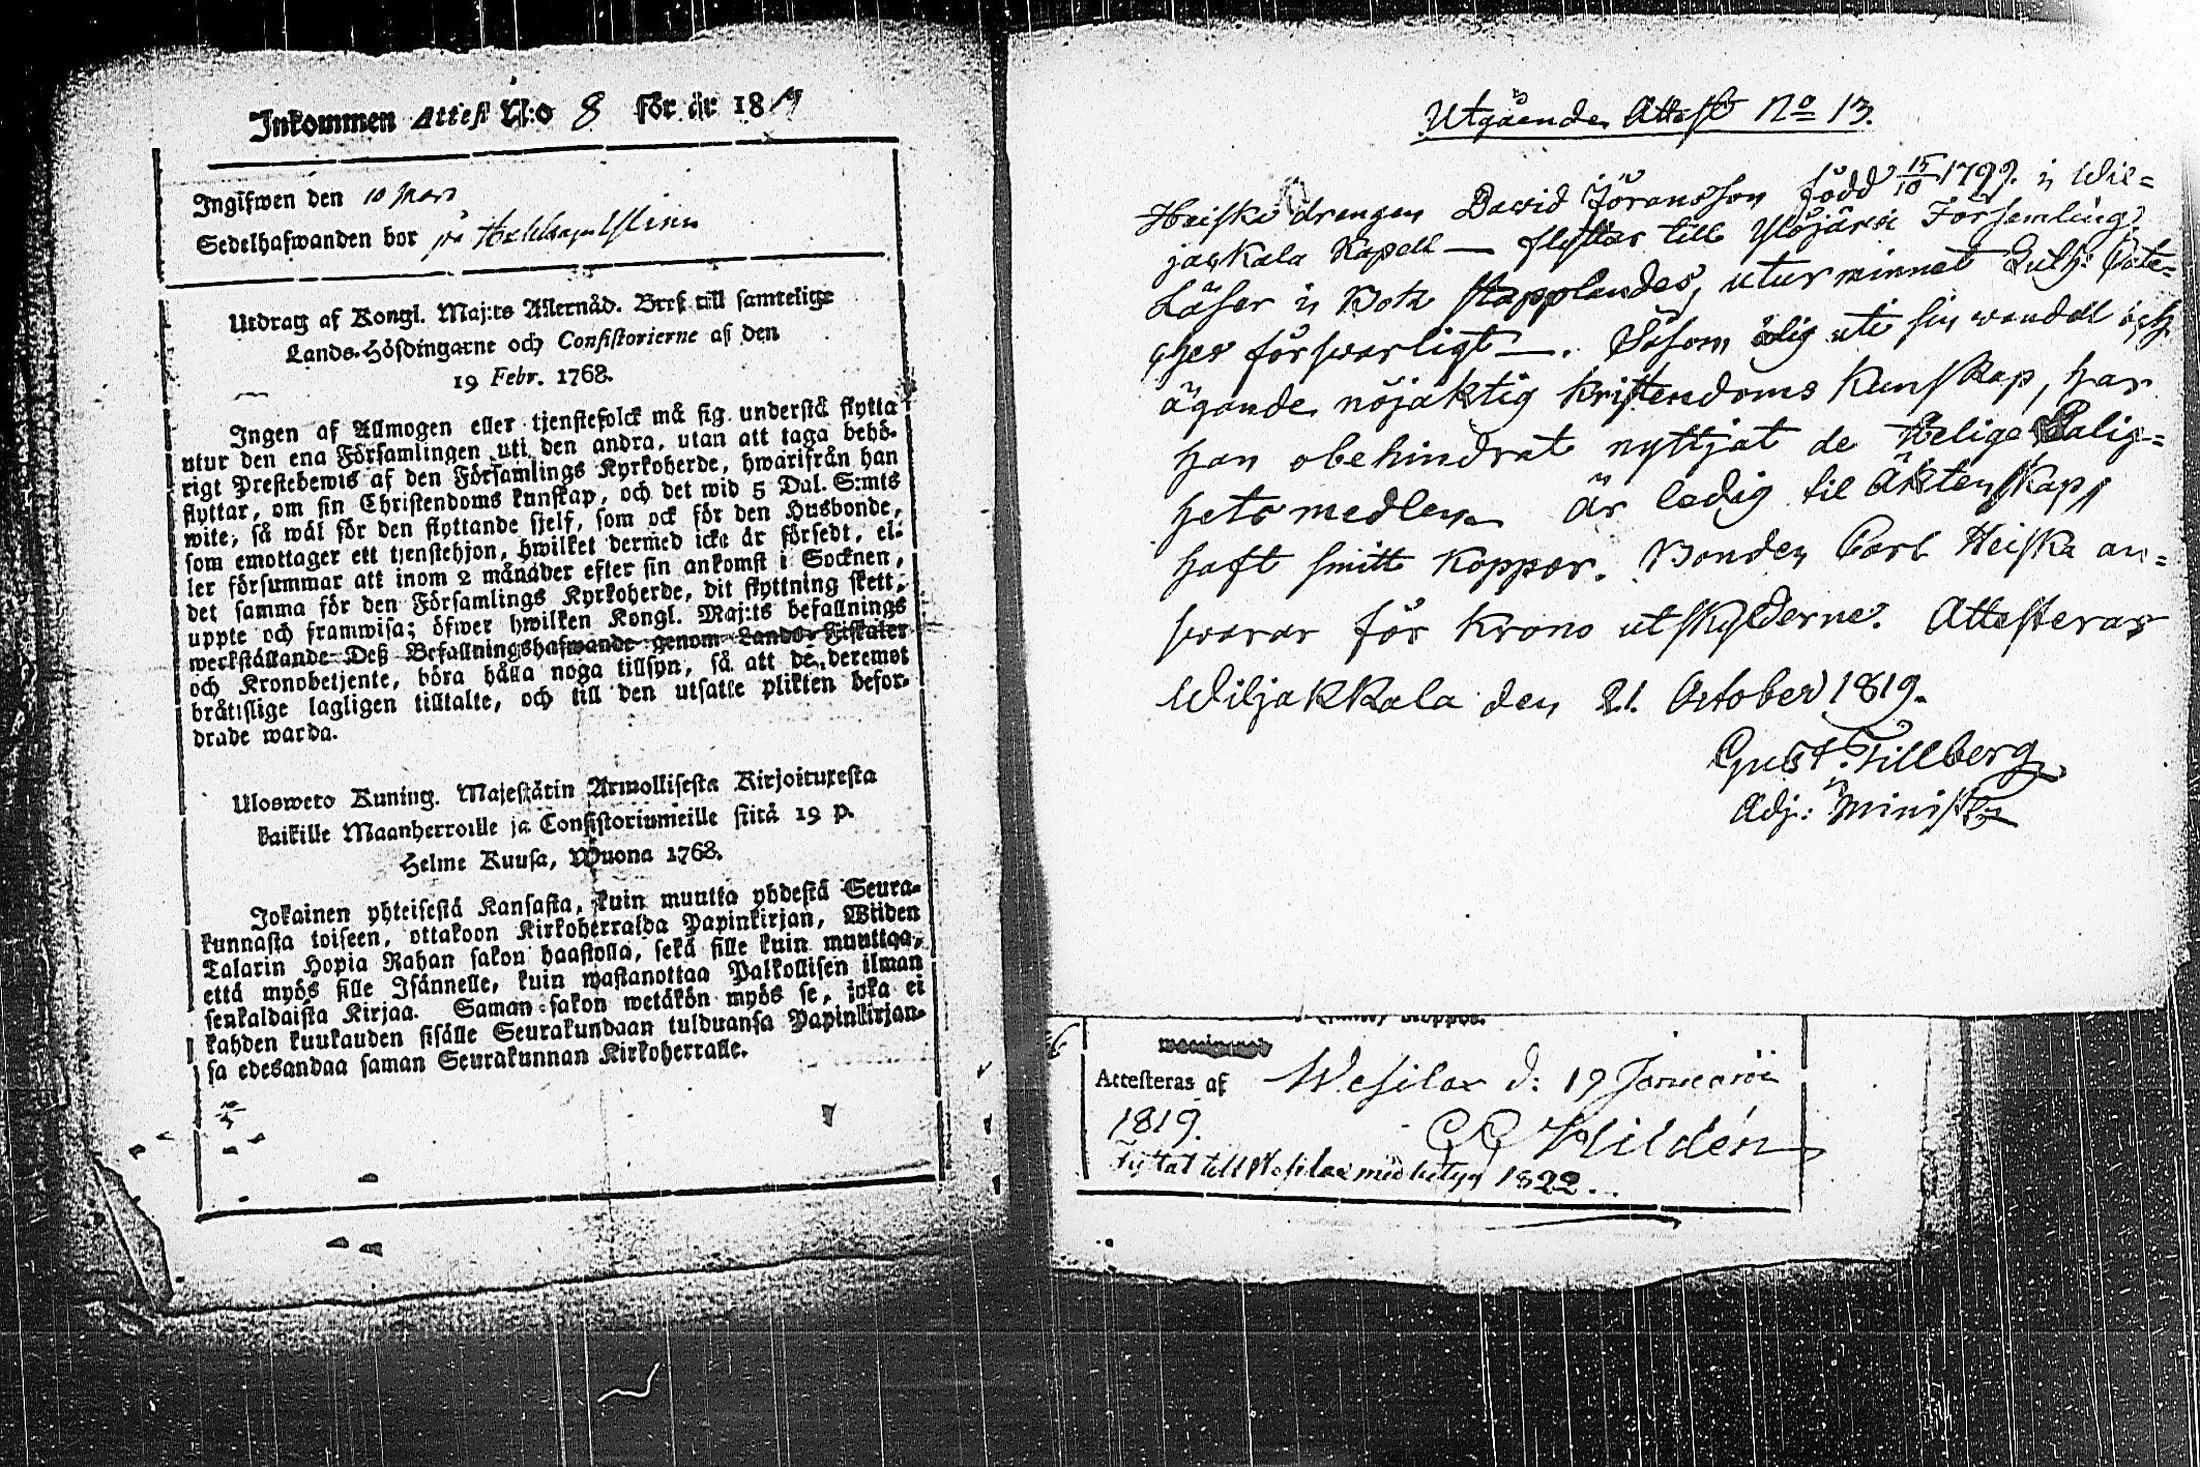 Inkommen Attest N:o 8 för år 1819
Ingifwen den 10 Mars
Sedelhafwanden bor på
Utdrag af Kongl. Maj:ts Allernåd. Bref till samtelige
Lands-Höfdingarne och Consistorierne af den
19 Febr. 1768.
Ingen af Allmogen eller tjenstefolck må sig understå flytta
utur den ena Församlingen uti den andra, utan att taga behö-
rigt Prestebewis af den Församlings Kyrkoherde, hwarifrån han
flyttar, om sin Christendoms kunskap, och det wid 5 Dal. S:mts
wite, så wäl för den flyttande sjelf, som ock för den Husbonde,
som emottager ett tjenstehjon, hwilket dermed icke är försedt, el-
ler försummar att inom 2 månader efter sin ankomst i Socknen,
det samma för den Församlings Kyrkoherde, dit flyttning skett,
uppte och framwisa; öfwer hwilken Kongl. Maj:ts befallnings
werkställande Deß Befallningshafwande genom Lands-Fiskaler
och Kronobetjente, böra hålla noga tillsyn, så att de deremot
bråttslige lagligen tilltalte, och till den utsatte plikten befor-
drade warda.
Ulosweto Kuning. Majestätin Armollisesta Kirjoituxesta
kaikille Maanherroille ja Consistoriumeille siitä 19 p.
Helme Kuusa, Wuona 1768.
Jokainen yhteisestä Kansasta, kuin muutta yhdestä Seura-
kunnasta toiseen, ottakoon Kirkoherralda Papinkirjan, Wiiden
Talarin Hopia Rahan sakon haastolla, sekä sille kuin muuttaa,
että myös sille Isännelle, kuin wastanottaa Palkollisen ilman
senkaldaista Kirjaa. Saman sakon wetäkön myös se, joka ei
kahden kuukauden sisälle Seurakundaan tulduansa Papinkirjan-
sa edesandaa saman Seurakunnan Kirkoherralle.
Utgående Attest No 13.
Heiska drengen David Jöransson född 15/10 1799. i Wil=
jakkala Kapell — flyttar till Ylöjärvi Församling.
Läser i Bok stapplandes, utur minnet Luth: Cate=
ches försvarligt —. Såsom ärlig uti sin wandel och
ägande nöjaktig Kristendoms Kunskap, har
han obehindrat nyttjat de Helige Salig=
hets medlen är ledig til Äktenskap,
haft smitt koppor. Bonden Carl Heiska an=
svarar för Krono utskylderne. Attesteras
Wiljakkala den 21. October 1819.
Gust. Tillberg
Adj: Minist:
Koppor.
Attesteras af Wesilax d: 19 Januarii
1819.
Hildén
Flyttat till Wesilax med betyg 1822